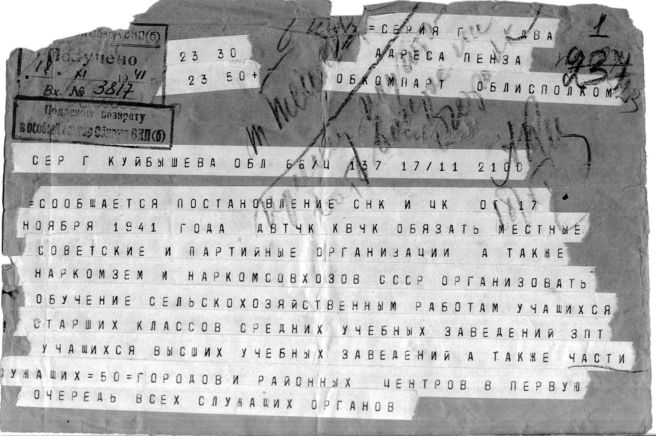 Получено
18 XI 1941 г.
Вх. № 3817
Подлежит возврату
в особый сектор Обкома ВКП(б)
23 30
23 50+
=СЕРИЯ Г ДВА
АДРЕСА ПЕНЗА
ОБКОМПАРТ ОБЛИСПОЛКОМ
1
СЕР Г КУЙБЫШЕВА ОБЛ 66/Ч 137 17/11 2100
=СООБЩАЕТСЯ ПОСТАНОВЛЕНИЕ СНК И ЦК ОТ 17
НОЯБРЯ 1941 ГОДА ДВТЧК КВЧК ОБЯЗАТЬ МЕСТНЫЕ
СОВЕТСКИЕ И ПАРТИЙНЫЕ ОРГАНИЗАЦИИ А ТАКЖЕ
НАРКОМЗЕМ И НАРКОМСОВХОЗОВ СССР ОРГАНИЗОВАТЬ
ОБУЧЕНИЕ СЕЛЬСКОХОЗЯЙСТВЕННЫМ РАБОТАМ УЧАЩИХСЯ
СТАРШИХ КЛАССОВ СРЕДНИХ УЧЕБНЫХ ЗАВЕДЕНИЙ ЗПТ
УЧАЩИХСЯ ВЫСШИХ УЧЕБНЫХ ЗАВЕДЕНИЙ А ТАКЖЕ ЧАСТИ
УЖАЩИХ=50=ГОРОДОВИ РАЙОННЫХ ЦЕНТРОВ В ПЕРВУЮ
ОЧЕРЕДЬ ВСЕХ СЛУЖАЩИХ ОРГАНОВ